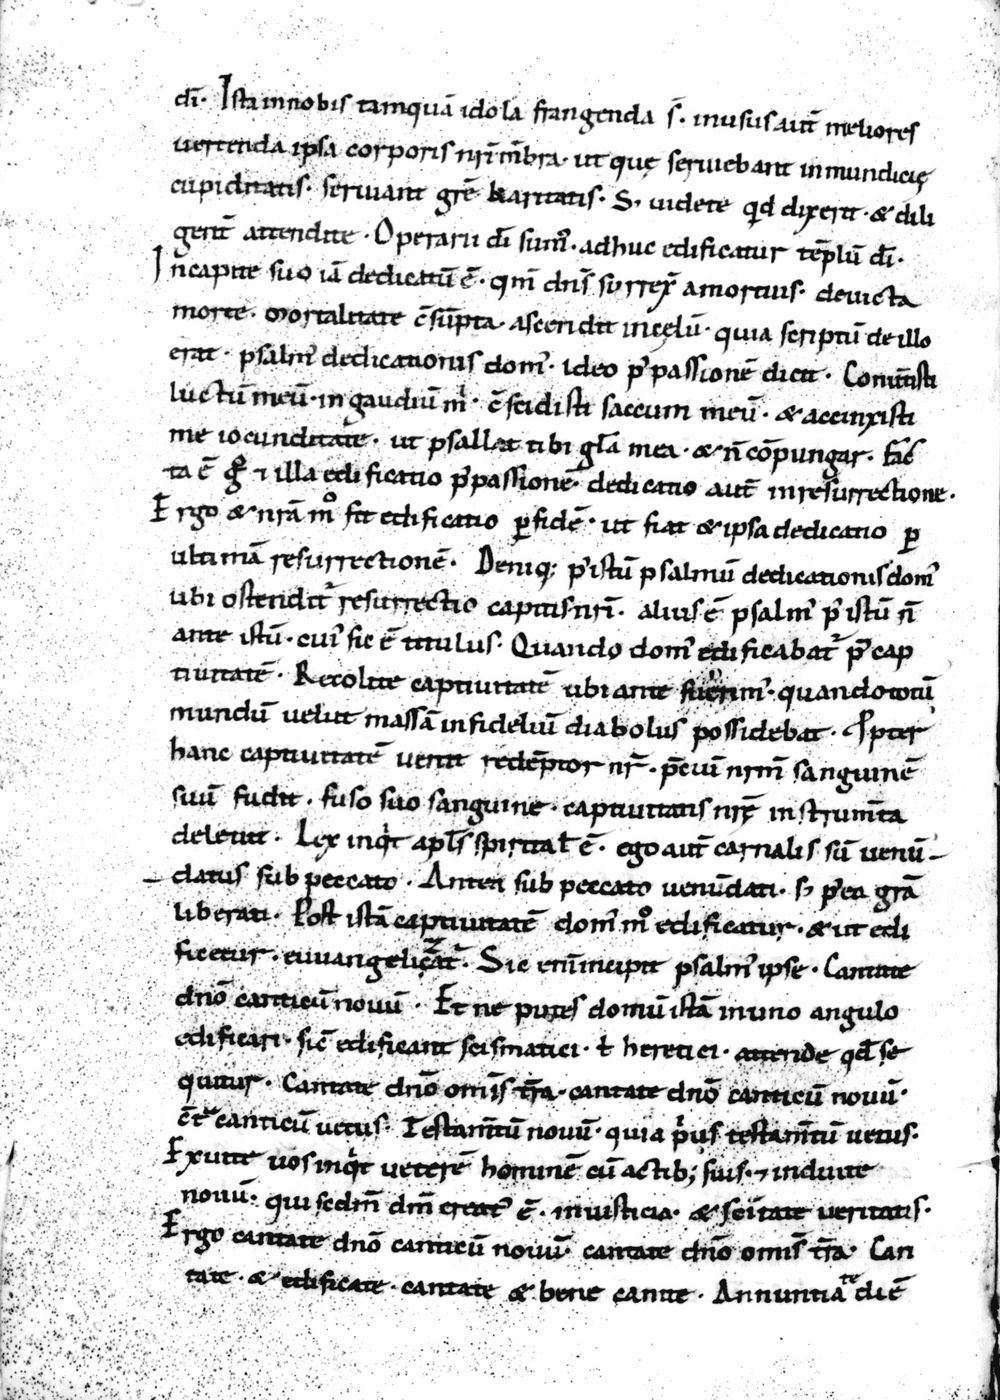 dī. Ista in nobis tamquā idola frangenda s̄. in usus aut̄ meliores
uertenda ipsa corporis nr̄i m̄bra. ut quę seruiebant inmundicię
cupiditatis. seruiant grę̄ karitatis. S; uidete qd̄ dixerit. & dili
gent̄ attendite. Operarii dī sumꝰ. adhuc edificatur tēplū dī.
In capite suo iā dedicatū ē. qm̄ dn̄s surrex̄ a mortuis. deuicta
morte. mortalitate c̄sūpta. ascendit in cęlū. quia scriptū de illo
erat. psalmꝰ dedicationis domꝰ. ideo p̄ passionē dicit. Conuīsti
luctū meū. in gaudiū m̍. c̄scidisti saccum meū. & accinxisti
me iocunditate. ut psallat tibi gl̄a mea. & n̄ cōpungar. Fac̄
ta ē gͦ ⁊ illa edificatio p̄ passionē. dedicatio aut̄ in resurrectione.
Ergo & nr̄a mͦ fit edificatio ꝑ fidē. ut fiat & ipsa dedicatio ꝑ
ultimā resurrectionē. Deniq; p̄ istū psalmū dedicationis domꝰ
ubi ostendit̄ resurrectio capitis nr̄i. alius ē psalmꝰ p̄ istū n̄
ante istū. cuiꝰ sic ē titulus. Quando domꝰ edificabat̄ p̄ cap
tiuitatē. Recolite captiuitatē ubi ante fuerimꝰ. quando totū
mundū uelut massā infideliū diabolus possidebat. Ꝓpter
hanc captiuitatē uenit redēptor nr̄. p̄ciū nr̄m sanguinē
suū fudit. fuso suo sanguine. captiuitatis nr̄ę instrum̄ta
deleuit. Lex inqͥt apl̄s spiritał ē. ego aut̄ carnalis sū uenū
datus sub peccato. Antea sub peccato uenūdati. s; p̄ea grā
liberati. Post istā captiuitatē domꝰ mͦ edificatur. & ut edi
ficetur. euuangelizat̄. Sic eni̅ incipit psalmꝰ ipse. Cantate
dn̄o canticū nouū. Et ne putes domū istā in uno angulo
edificari. sic̄ edificant scismatici. ł heretici. attende qd̄ se
quitur. Cantate dn̄o om̄is tr̄a. cantate dn̄o canticū nouū.
c̄tͣ canticū uetus. Testam̄tū nouū. quia pͥus testam̄tū uetus.
Exuite uos inqͥt ueterē hominē cū actib; suis. ⁊ induite
nouū. qui scdm̄ dm̄ creatꝰ ē. in iusticia. & sc̄itate ueritatis.
Ergo cantate dn̄o canticū nouū. cantate dn̄o om̄is tr̄a. Can
tate. & edificate. cantate & bene cantate. Annuntiate diē